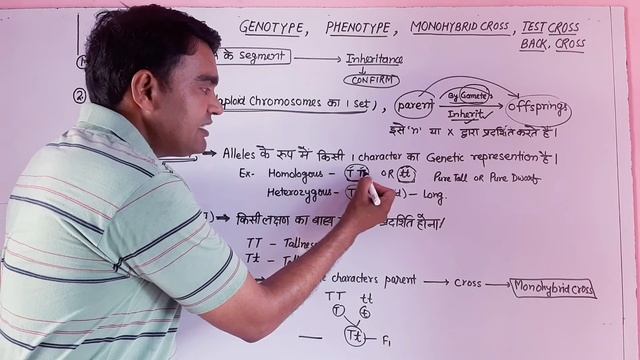 GENOTYPE, PHENOTYPE, MONOHYBRID CROSS, TEST CROSS
BACK CROSS
के Segment → Inheritance
↓
CONFIRM
② haploid Chromosomes का 1 set), parent By Gametes Inherit offsprings
इसे 'n' या x द्वारा प्रदर्शित करते हैं।
→ Alleles के रूप में किसी 1 character का Genetic represention है।
Ex- Homologous - OR tt Pure Tall OR Pure Dwarf
Heterozygous - - Long.
→ किसी लक्षण का बाह्य प्रदर्शित होना/
TT - Tallness
Tt - Tall
characters parent → Cross → Monohybrid cross
TT tt
T t
Tt - F₁